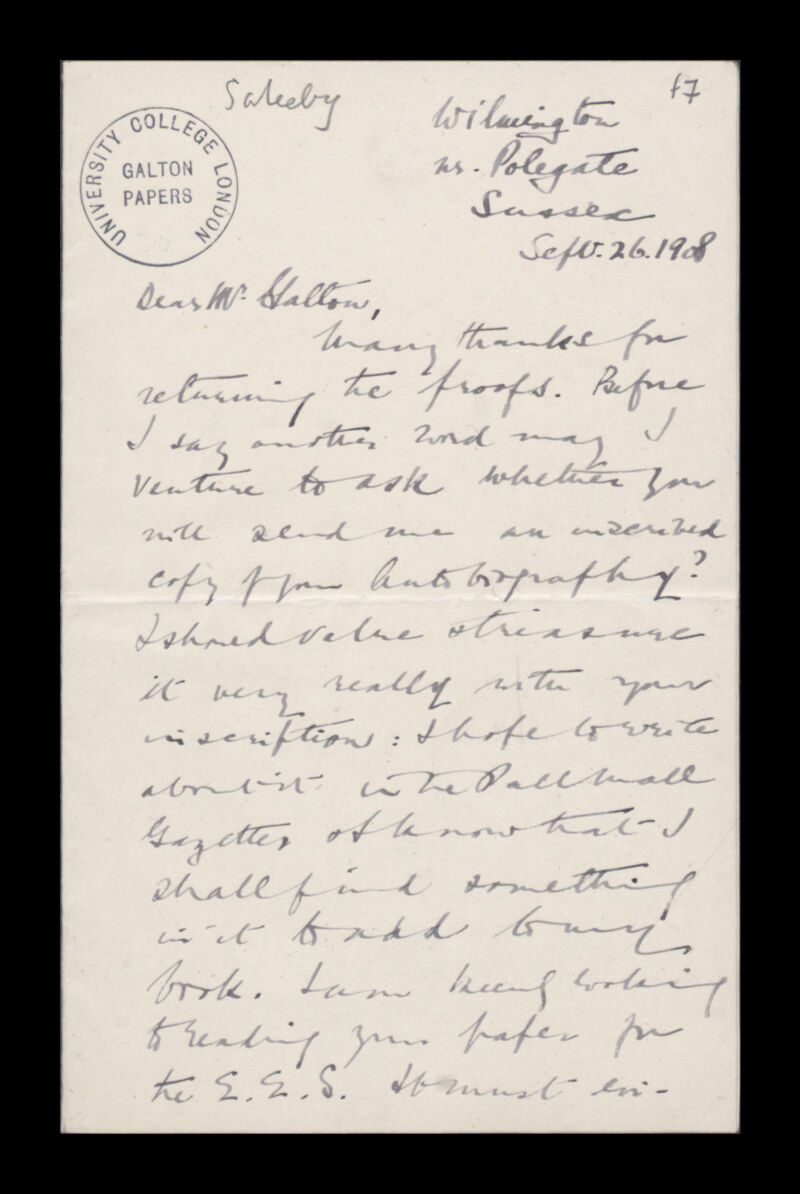 Saleeby
17
UNIVERSITY COLLEGE LONDON
GALTON
PAPERS
Wilmington
nr. Polegate
Sussex
Sept. 26. 1908
Dear Mr. Galton,
Many thanks for
returning the proofs. Before
I say another word may I
venture to ask whether you
will send me an inscribed
copy of your Autobiography?
I should value & treasure
it very really with your
inscription: I hope to write
about it in the Pall Mall
Gazette, & I know that I
shall find something
in it to add to my
book. I am keenly looking
to reading your paper for
the E.E.S. It must evi-